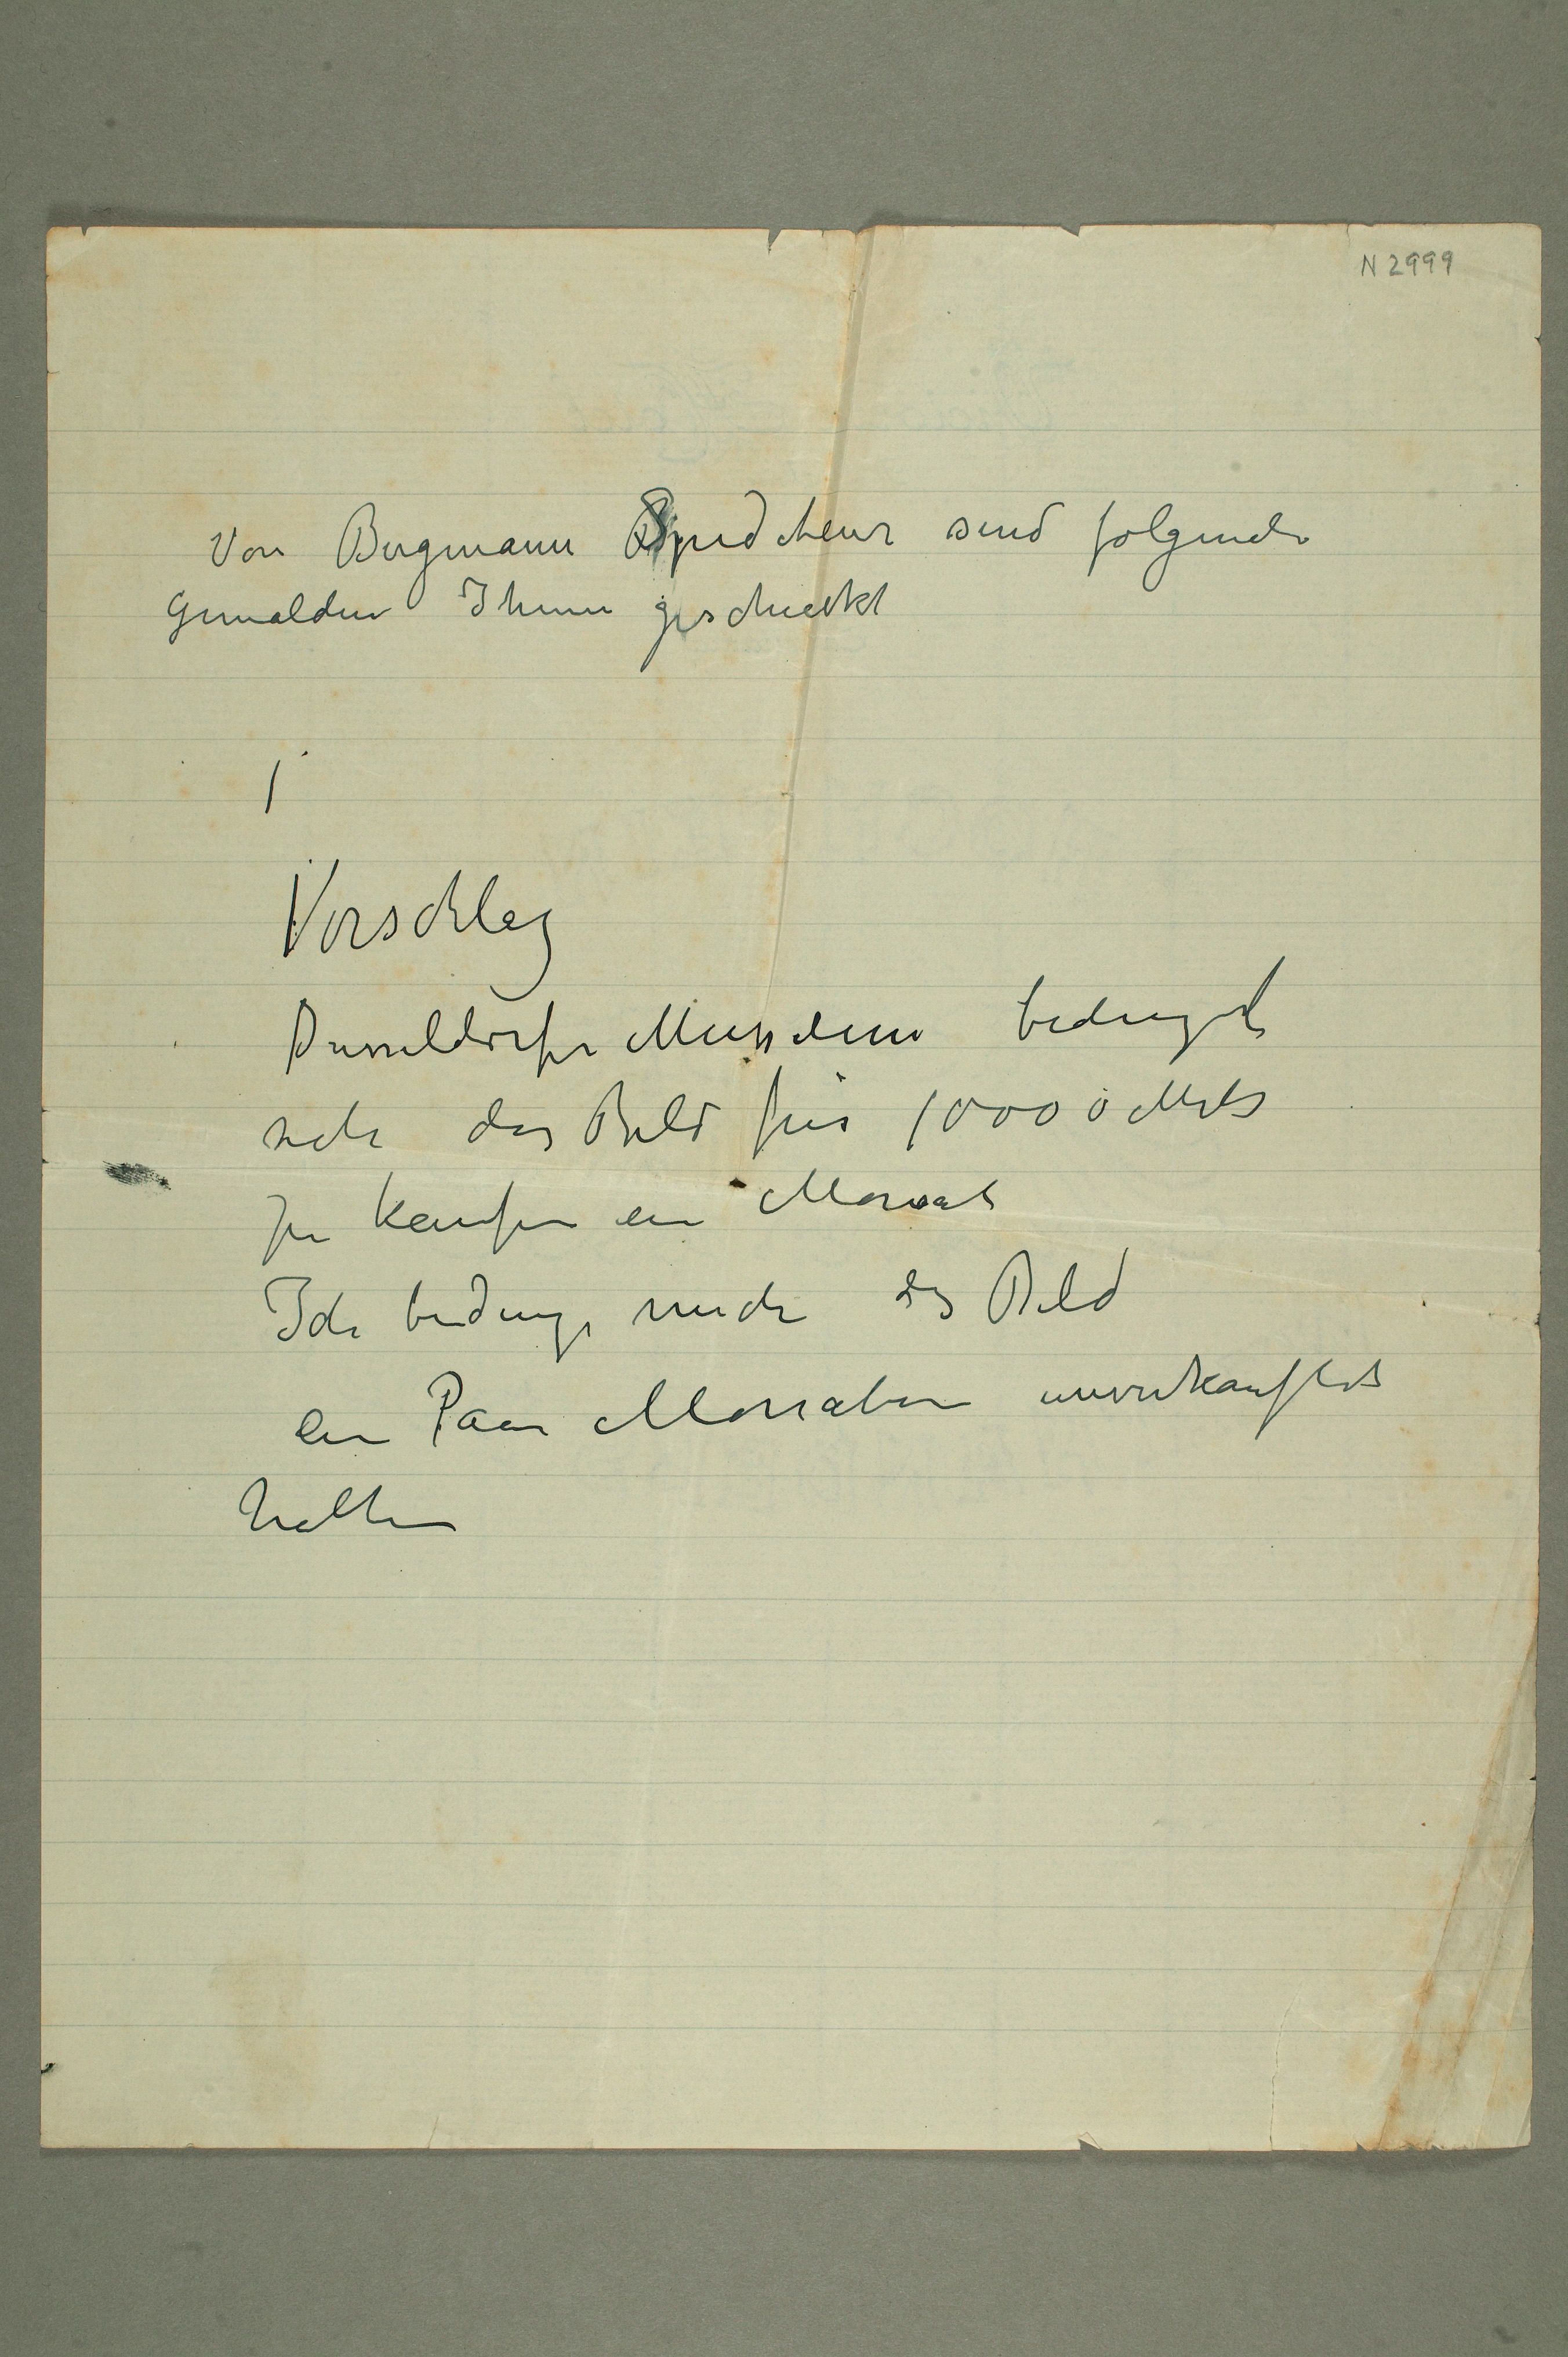 N 2999
Von Bergmann Spediteur sind folgende
Gemälden Ihnen geschickt
1
Vorschlag
Dusseldorfer Museum bedingt
sich das Bild für 10000 Mrk
zu kaufen ein Monat
Ich bedinge mich das Bild
ein Paar Monaten unverkauft
halten